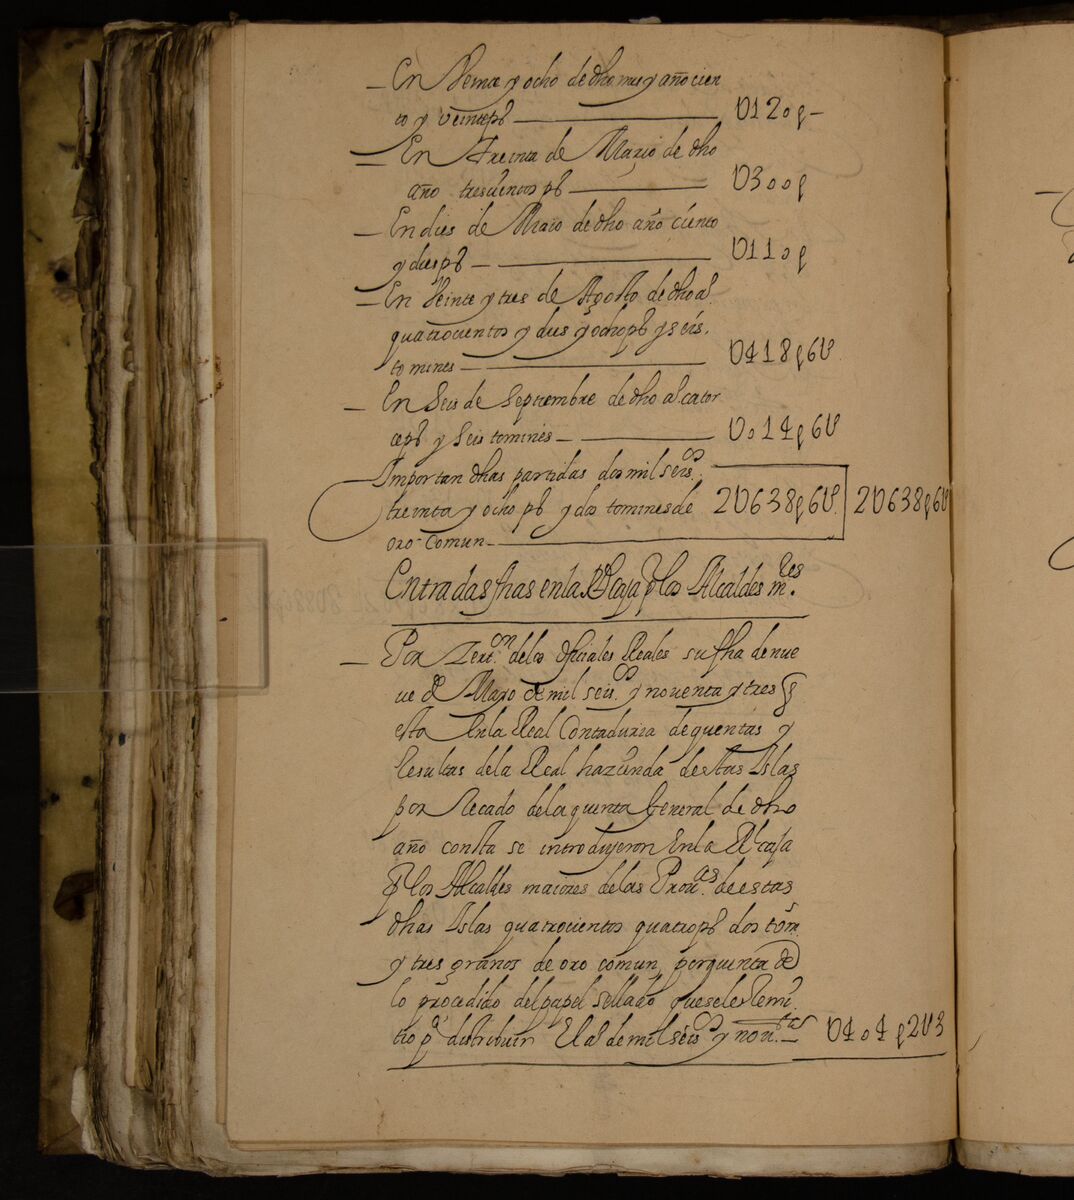 En Veinte y ocho de dho mes y año cien
to y veinte ps — U120 p
En treinta de Marzo de dho
año trescientos ps — U300 p
En dies de Maio de dho año ciento
y dies ps — U110 p
En Veinte y tres de Agosto de dho aº
quatrocientos y dies y ocho ps y seis
tomines — U418 p 6 U
En Seis de Septiembre de dho aº cator
ce ps y Seis tomines — U014 p 6U
Importan dhas partidas dos mil seisºˢ
treinta y ocho ps y dos tomines de 2U638 p 6U 2U638 p 6U
oro comun
Entradas fhas en la Rl caja p los Alcaldes mʳᵉˢ
Por Zertᵒⁿ de los ofiçiales Reales su fha de nue
ue de Mayo de mil seisºˢ y noventa y tres q
esta en la Real Contaduria de quentas y
resultas de la Real hazienda destas Islas
por recado de la quenta General de dho
año consta se introdujeron en la Rl caja
p los Alcaldes maiores de las Prouᵃˢ de estas
dhas Islas quatrocientos quatro ps dos tomˢ
y tres granos de oro comun por quenta de
lo proçedido del papel sellado que se les remi
tio pª distribuir el aº de mil seisºˢ y nouᵗᵃˢ — U404 p 2U3